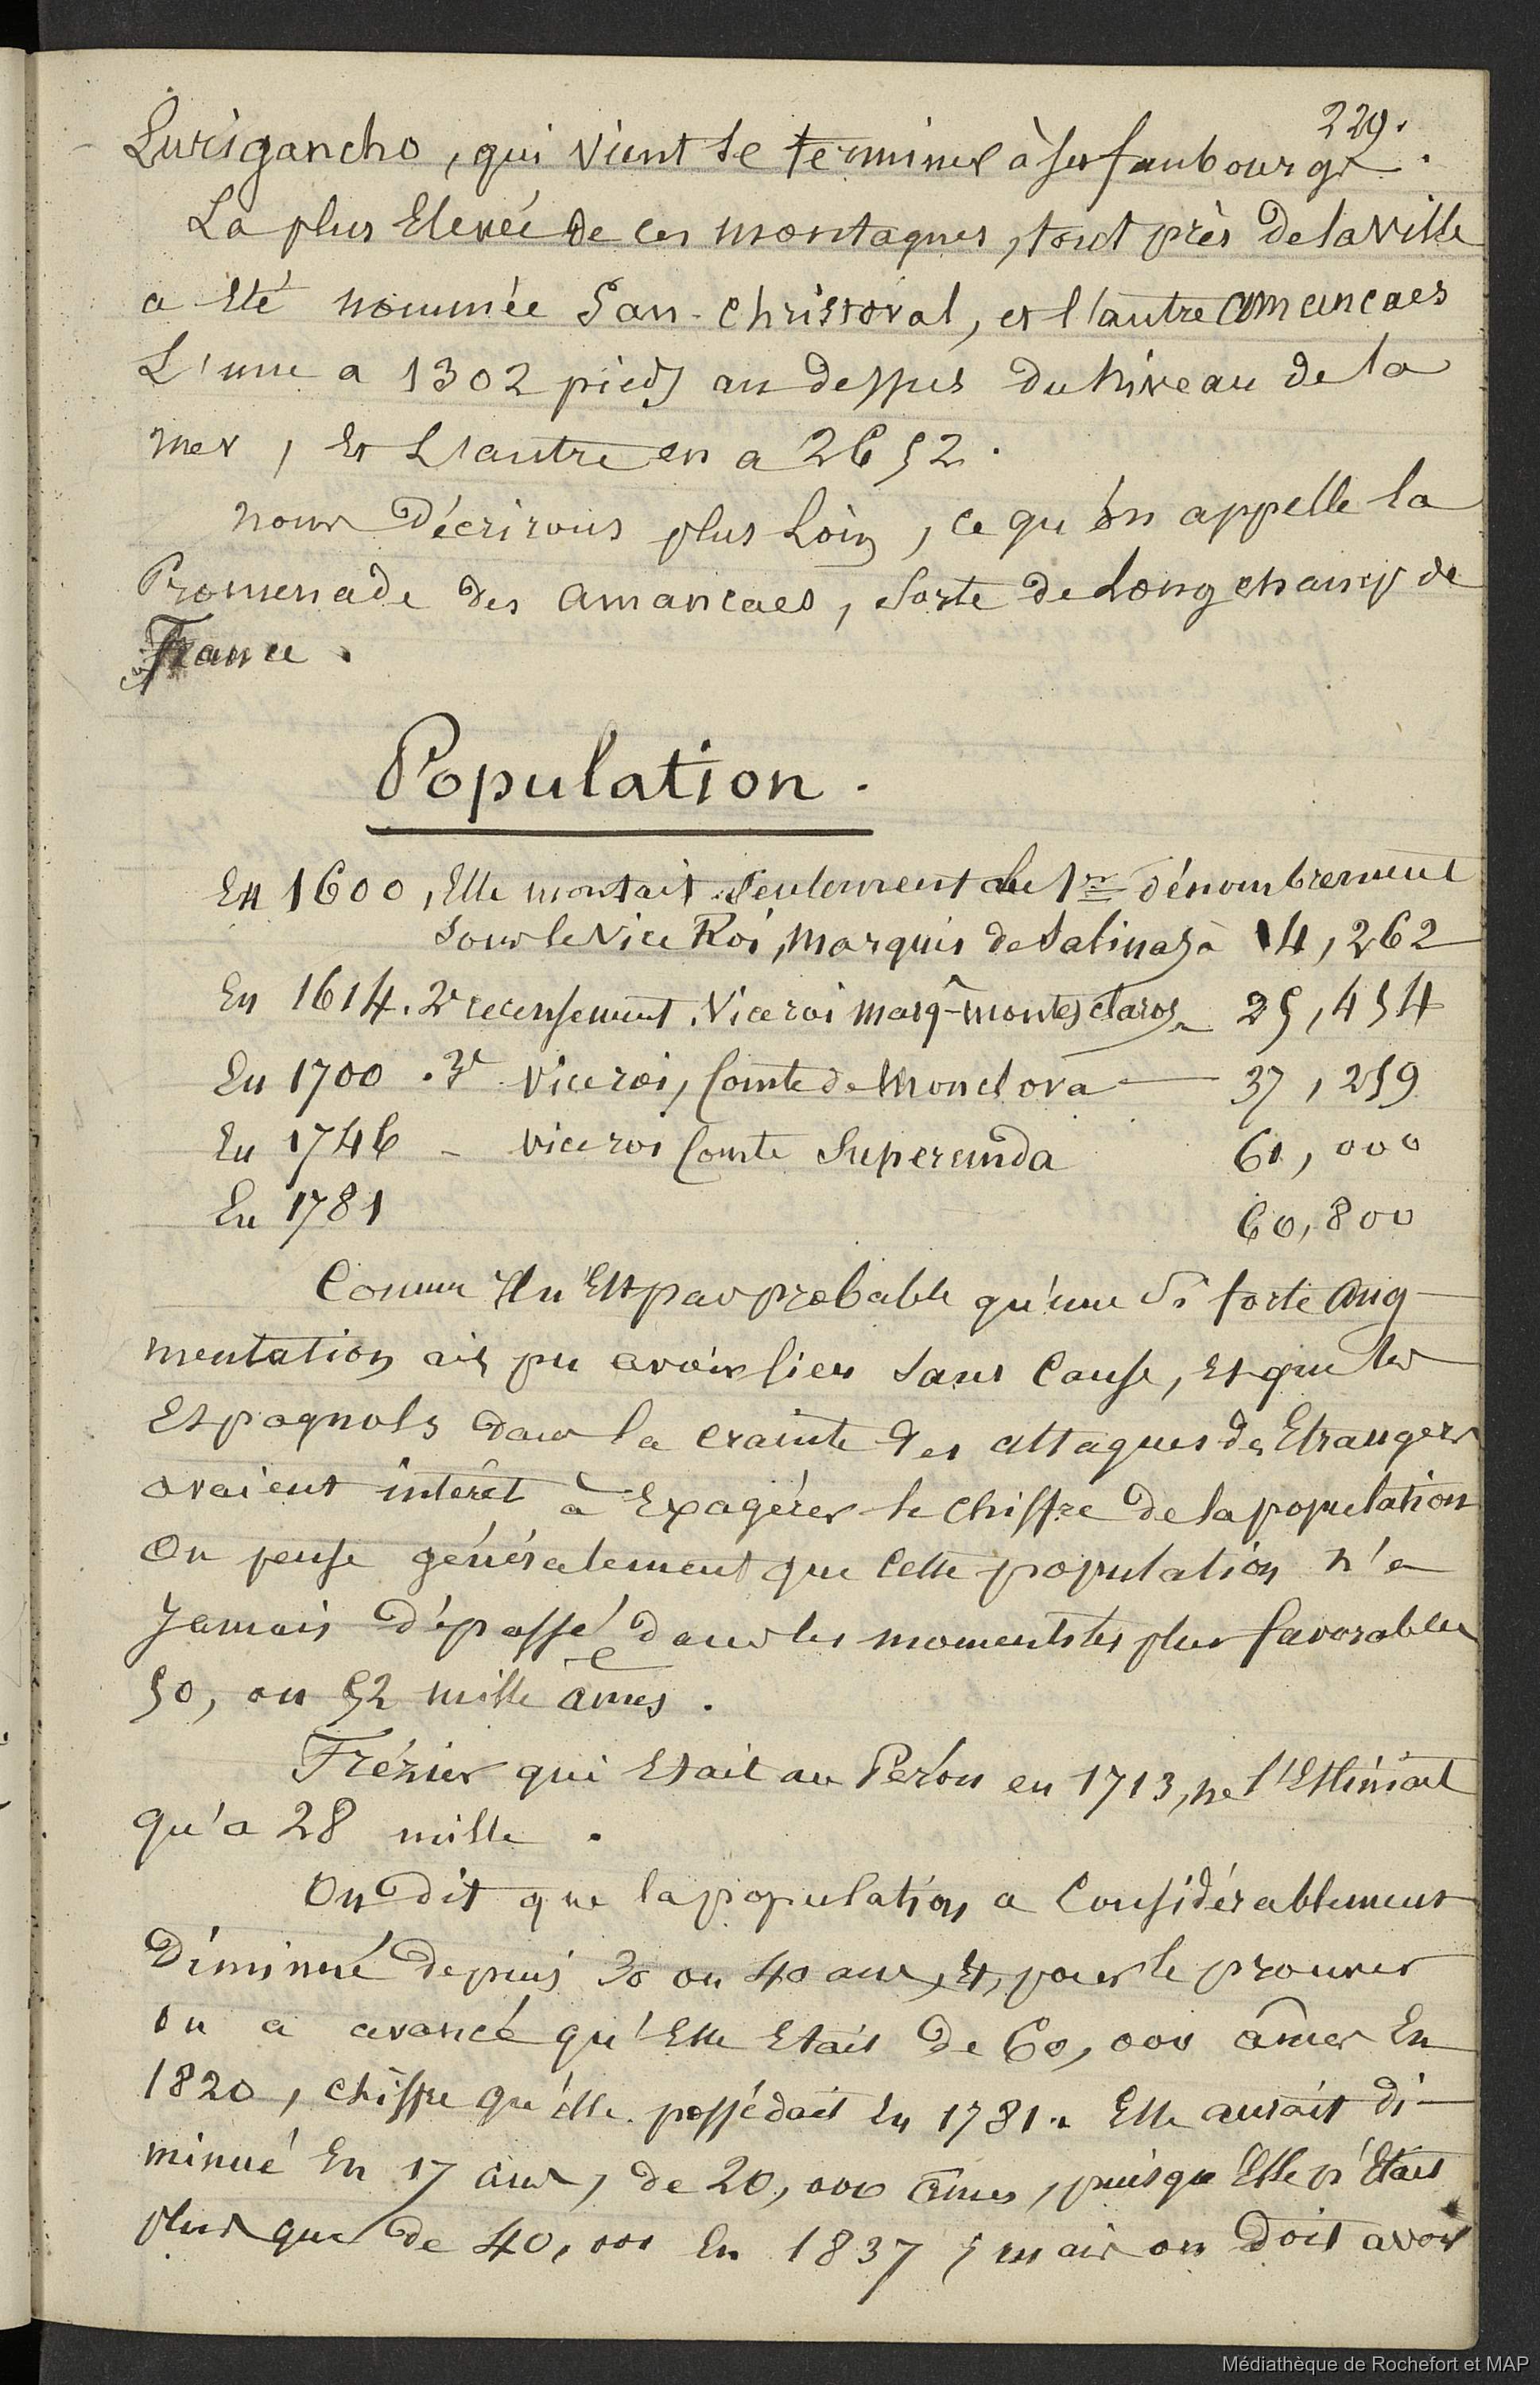 229.
Lurigancho, qui vient se terminer à ses faubourgs.
La plus Elevée de ces montagnes, tout près de la ville
a été nommée San-Christoval, et l'autre amancaes
L'une a 1302 pieds au dessus du niveau de la
mer, et L'autre en a 2652.
nous Décrirons plus Loin, ce qu'on appelle la
Promenade des amancaes, sorte de Longchamp de
France.
Population.
En 1600, Elle montait seulement au 1er dénombrement
sous le Vice Roi, marquis de Salinas à 14,262
En 1614. 2e recensement. Viceroi marq. montesclaros 25,454
En 1700. 3e Viceroi, Comte de Monclova — 37,259
En 1746 - viceroi Comte Superunda 60,000
En 1781 60,800
Comme Il n'Est pas probable qu'une si forte aug-
mentation ait pu avoir lieu sans Cause, et que les
Espagnols dans la crainte des attaques des Etrangers
avaient intérêt à Exagérer le chiffre de la population
On pense généralement que cette population n'a
Jamais dépassé dans les moments les plus favorables
50, ou 52 mille âmes.
Frézier qui Etait au Pérou en 1713, ne l'Estimait
qu'a 28 mille.
On dit que la population a Considérablement
Diminué depuis 30 ou 40 ans, et, pour le prouver
on a avancé qu'Elle Etait de 60,000 âmes En
1820, chiffre qu'elle possédait En 1781. Elle aurait di-
minué En 17 ans, de 20,000 âmes, puisqu'Elle n'Etait
plus que de 40,000 En 1837; mais on Doit avoir
Médiathèque de Rochefort et MAP